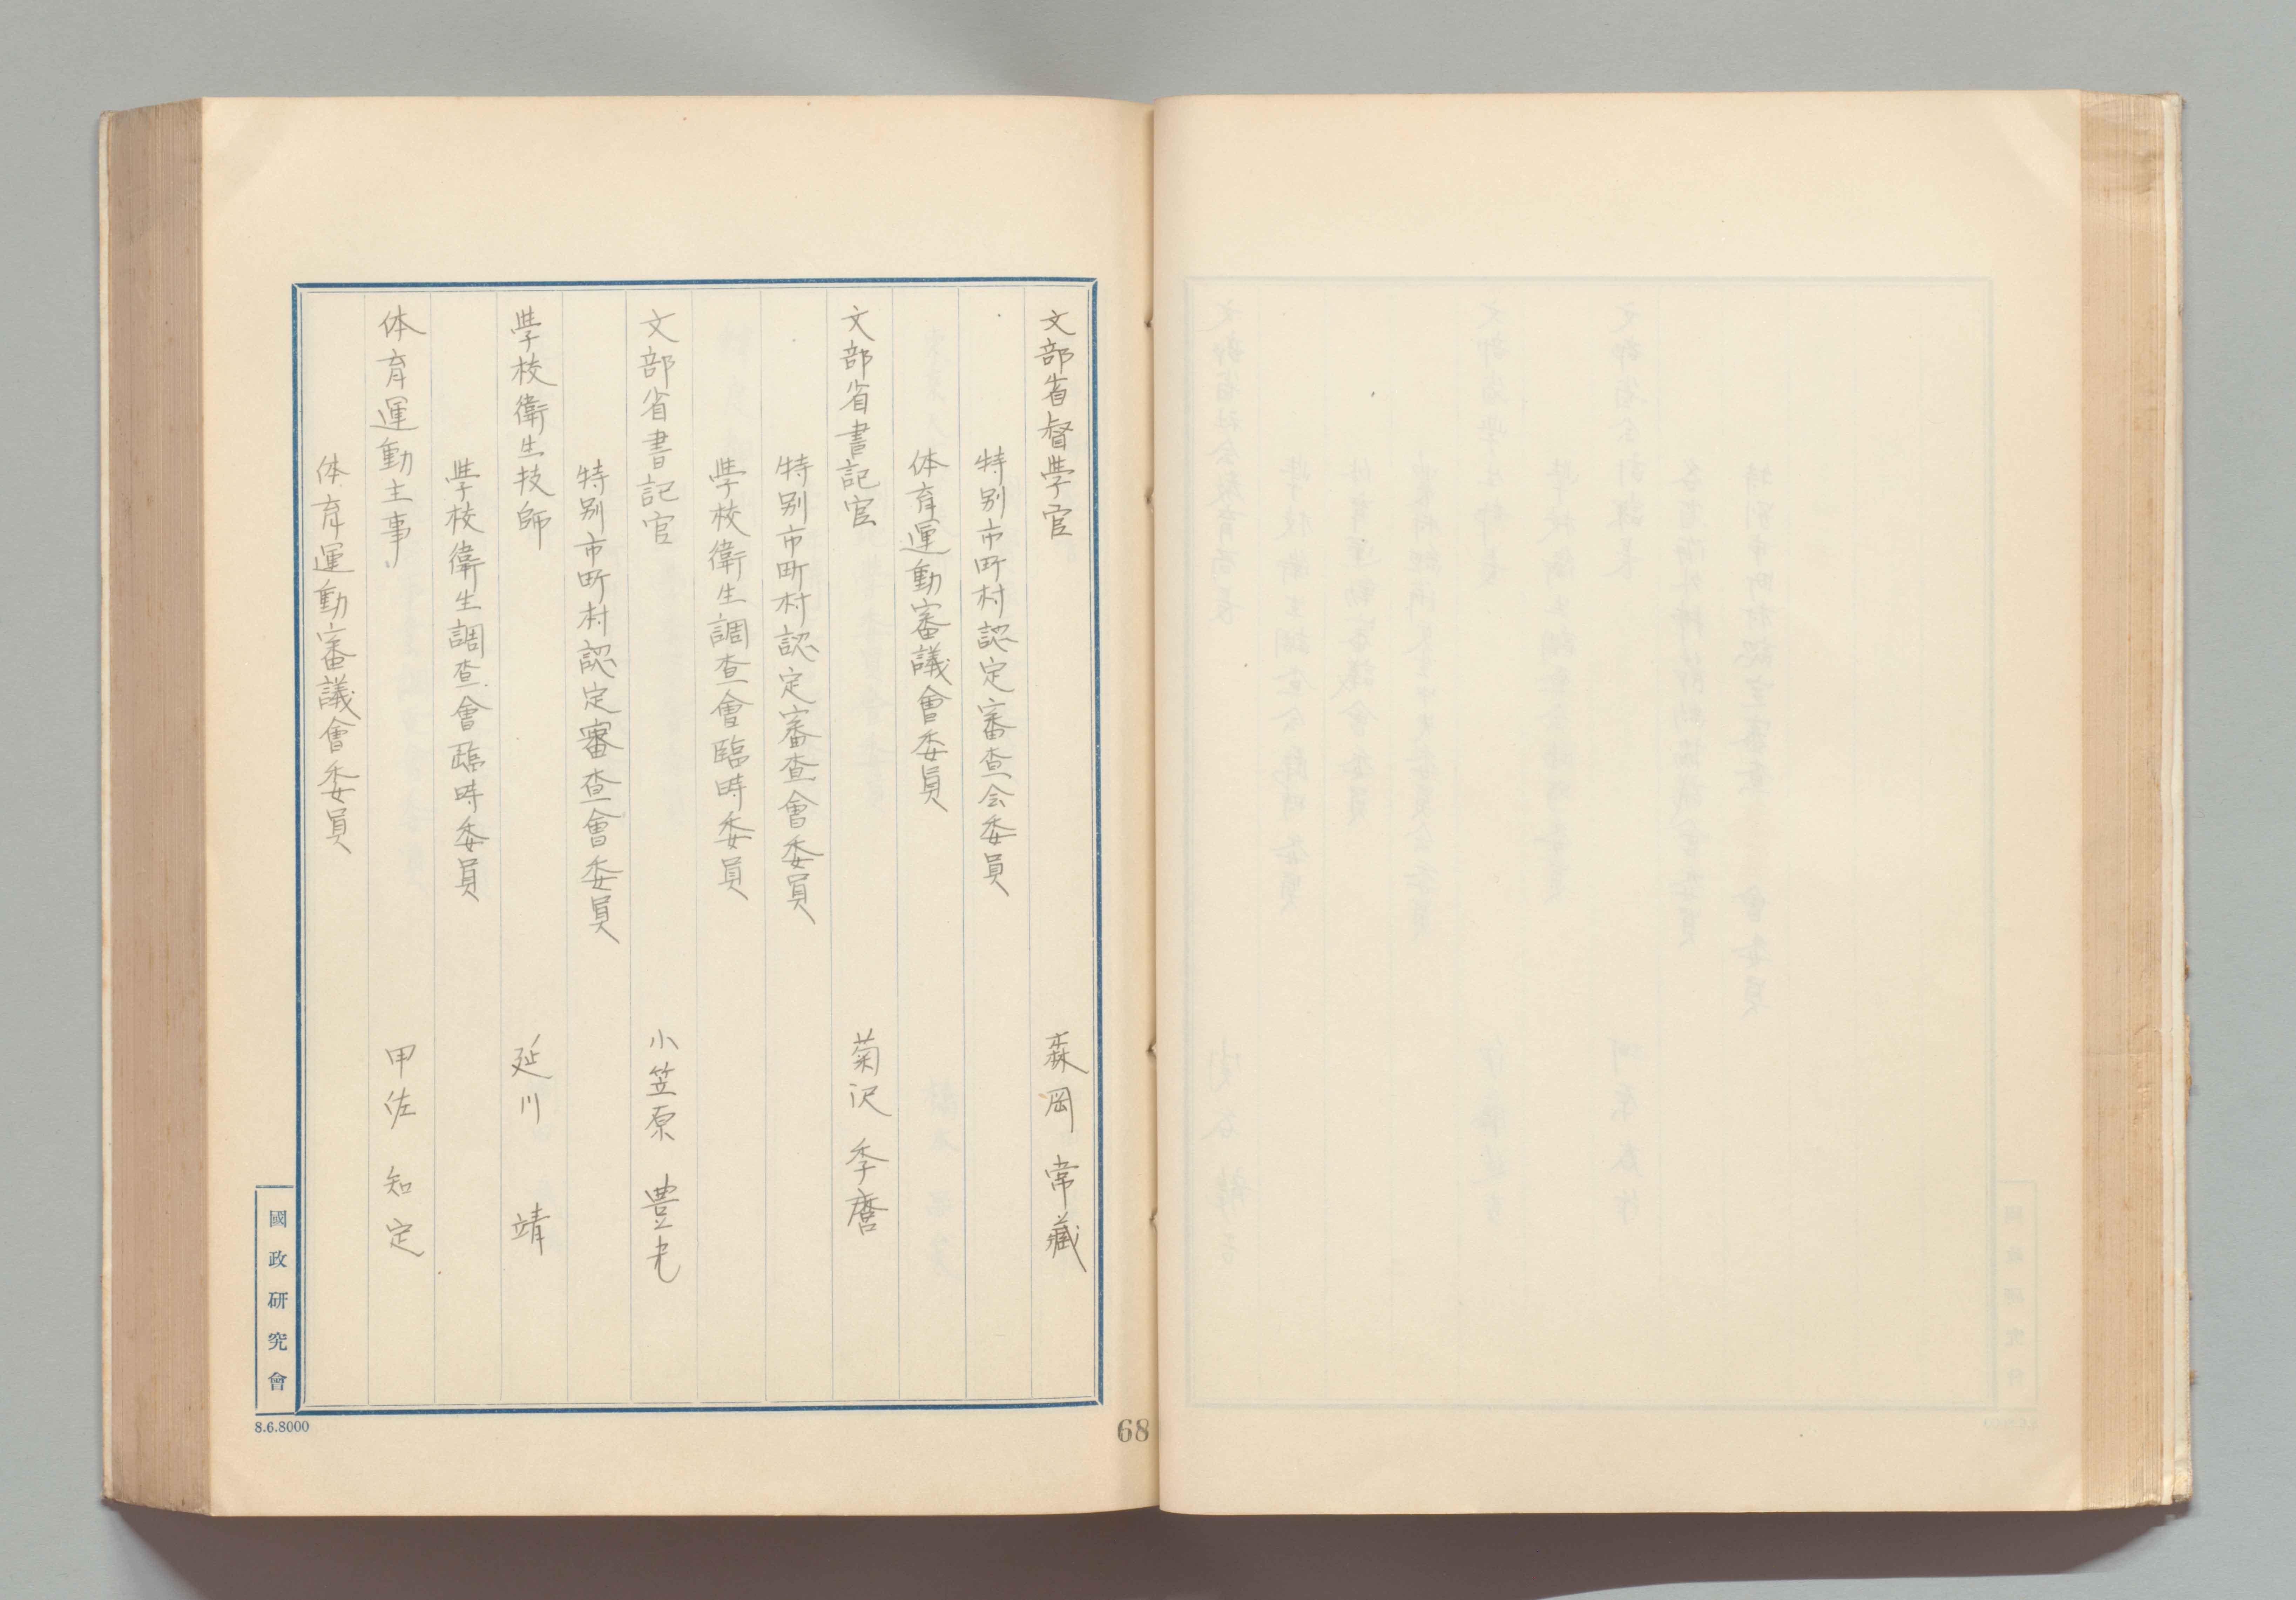 文部省督学官　森岡　常藏
特別市町村認定審査会委員
体育運動審議會委員
文部省書記官　菊沢　季麿
特別市町村認定審査會委員
学校衛生調査會臨時委員
文部省書記官　小笠原　豊光
特別市町村認定審査會委員
学校衛生技師　延川　靖
学校衛生調査會臨時委員
体育運動主事　甲佐　知定
体育運動審議會委員
國政研究會
8.6.8000
68